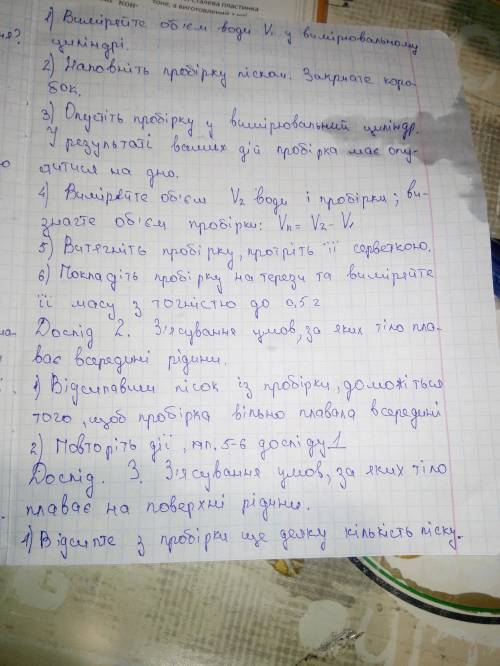 сталева пластинка
КОН-
тоне, а виготовлений з неї
1) Виміряйте об'єм води V₁ у вимірювальному
циліндрі.
2) Наповніть пробірку піском. Закрийте коро-
бок.
3) Опустіть пробірку у вимірювальний циліндр.
У результаті ваших дій пробірка має опу-
ститися на дно.
4) Виміряйте об'єм V₂ води і пробірки; ви-
значте об'єм пробірки: Vп = V₂ - V₁
5) Витягніть пробірку, протріть її серветкою.
6) Покладіть пробірку на терези та виміряйте
її масу з точністю до 0,5 г
Дослід 2. З'ясування умов, за яких тіло пла-
ває всередині рідини.
1) Відсипавши пісок із пробірки, доможіться
того, щоб пробірка вільно плавала всередині
2) Повторіть дії, пп. 5-6 досліду 1
Дослід. 3. З'ясування умов, за яких тіло
плаває на поверхні рідини.
1) Відсипте з пробірки ще деяку кількість піску.